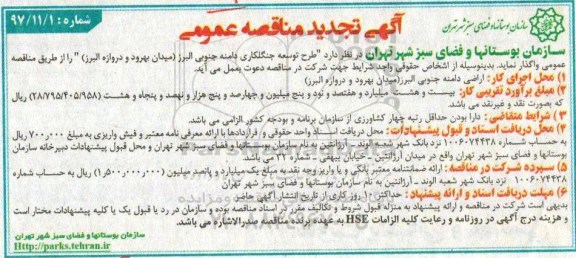 شماره : ۹۷/۱۱/۱
آگهی تجدید مناقصه عمومی
سازمان بوستانها و فضای سبز شهر تهران
سازمان بوستانها و فضای سبز شهر تهران در نظر دارد "طرح توسعه جنگلکاری دامنه جنوبی البرز (میدان بهرود و دروازه البرز) " را از طریق مناقصه
عمومی واگذار نماید. بدینوسیله از اشخاص حقوقی واجد شرایط جهت شرکت در مناقصه دعوت بعمل می آید.
۱) محل اجرای کار: اراضی دامنه جنوبی البرز(میدان بهرود و دروازه البرز)
۲) مبلغ برآورد تقریبی کار: بیست و هشت میلیارد و هفتصد و نود و پنج میلیون و چهارصد و پنج هزار و نهصد و پنجاه و هشت (۲۸/۷۹۵/۴۰۵/۹۵۸) ریال
که بصورت نقد و غیرنقد می باشد.
۳ ) شرایط متقاضی : دارا بودن حداقل رتبه چهار کشاورزی از سازمان برنامه و بودجه کشور الزامی می باشد.
۴) محل دریافت اسناد و قبول پیشنهادات : محل دریافت اسناد واحد حقوقی و قراردادها با ارائه معرفی نامه معتبر و فیش واریزی به مبلغ ۷۰۰٫۰۰۰ ریال
به حساب شماره ۱۰۰۶۰۷۴۴۲۸ نزد بانک شهر شعبه الوند – آرژانتین به نام سازمان بوستانها و فضای سبز شهر تهران و محل قبول پیشنهادات دبیرخانه سازمان
بوستانها و فضای سبز شهر تهران واقع در میدان آرژانتین – خیابان بیهقی – شماره ۲۲ می باشد.
۵) سپرده شرکت در مناقصه : ارائه ضمانتنامه معتبر بانکی و یا واریز وجه نقد به مبلغ یک میلیارد و پانصد میلیون (۱٫۵۰۰٫۰۰۰٫۰۰۰) ریال به حساب شماره
۱۰۰۶۰۷۴۴۲۸ نزد بانک شهر شعبه الوند – آرژانتین به نام سازمان بوستانها و فضای سبز شهر تهران
۶) مهلت دریافت اسناد و ارائه پیشنهاد : حداکثر ۱۰ روز کاری از تاریخ انتشار آگهی حاضر
بدیهی است شرکت در مناقصه و ارائه پیشنهاد به منزله قبول شروط و تکالیف مقرر در اسناد مناقصه بوده و سازمان در رد یا قبول یک یا کلیه پیشنهادات مختار است
و هزینه درج آگهی در روزنامه و رعایت کلیه الزامات HSE به عهده برنده مناقصه صدرالاشاره می باشد.
سازمان بوستانها و فضای سبز شهر تهران
Http://parks.tehran.ir